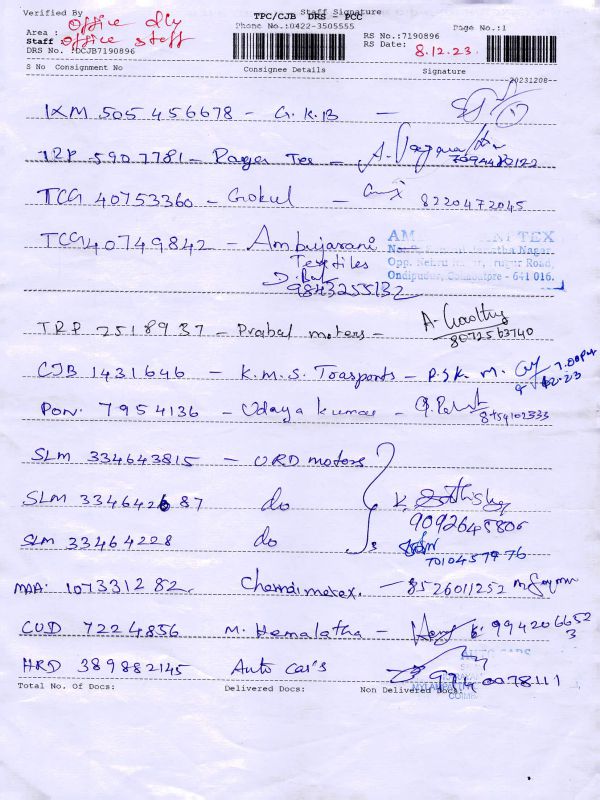 Verified By Staff Signature
TPC/CJB DRS - PCC
Office dly
Phone No.:0422-3505555 Page No.:1
Area :
RS No.:7190896
Staff office staff
RS Date: 8.12.23.
DRS No. :DCJB7190896
S No Consignment No Consignee Details Signature
20231208--
IXM 505 456678 - G.K.B -
TRP 5907781 - Rayar Tex -
TCG 40753360 - Gokul - 8220472045
TCG 40749842 - Ambujarani
Textiles
9843255132
AM TEX
Nagar,
Opp. Road,
Ondipudur, Coimbatore - 641 016.
TRP 2518937 - Prabal motors -
8072563740
CJB 1431646 - K.M.S. Trasports - P.S.K. M. 7.00PM
PON. 7954136 - Udaya kumar - 8754102333
SLM 334643815 - URD motors
SLM 334642687 do
9092645806
SLM 33464228 do
7010457976
MAA: 107331282. Chendimetex. - 8526011252
CUD 7224856 M. Hemalatha - 9942066523
HRD 389882145 Auto car's 9740078111
Total No. Of Docs: Delivered Docs: Non Delivered Docs: